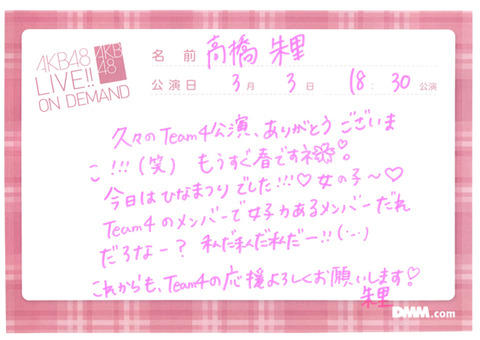 AKB48
LIVE!!
ON DEMAND
AKB
48
名前 高橋朱里
公演日 3月 3日 18:30公演
久々のTeam4公演、ありがとうございま
こ!!!(笑) もうすぐ春ですネ🌸🌸!
今日はひなまつりでした!!!♡女の子〜♡
Team4のメンバーで女子力あるメンバーだれ
だろなー? 私だ私だ私だー!!(・-・)
これからも、Team4の応援よろしくお願いします!♡
朱里
DMM.com